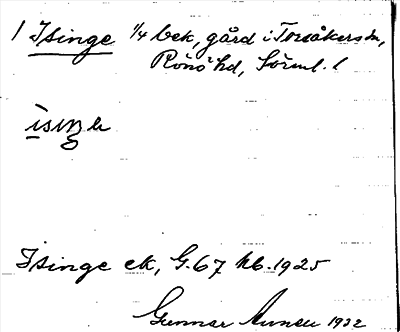 1 Isinge 1/4 bek, gård i Toresåkers sn,
Rönö hd, Sörml. l
Isinge ek, G. 67 hb. 1925
Gunnar 1922